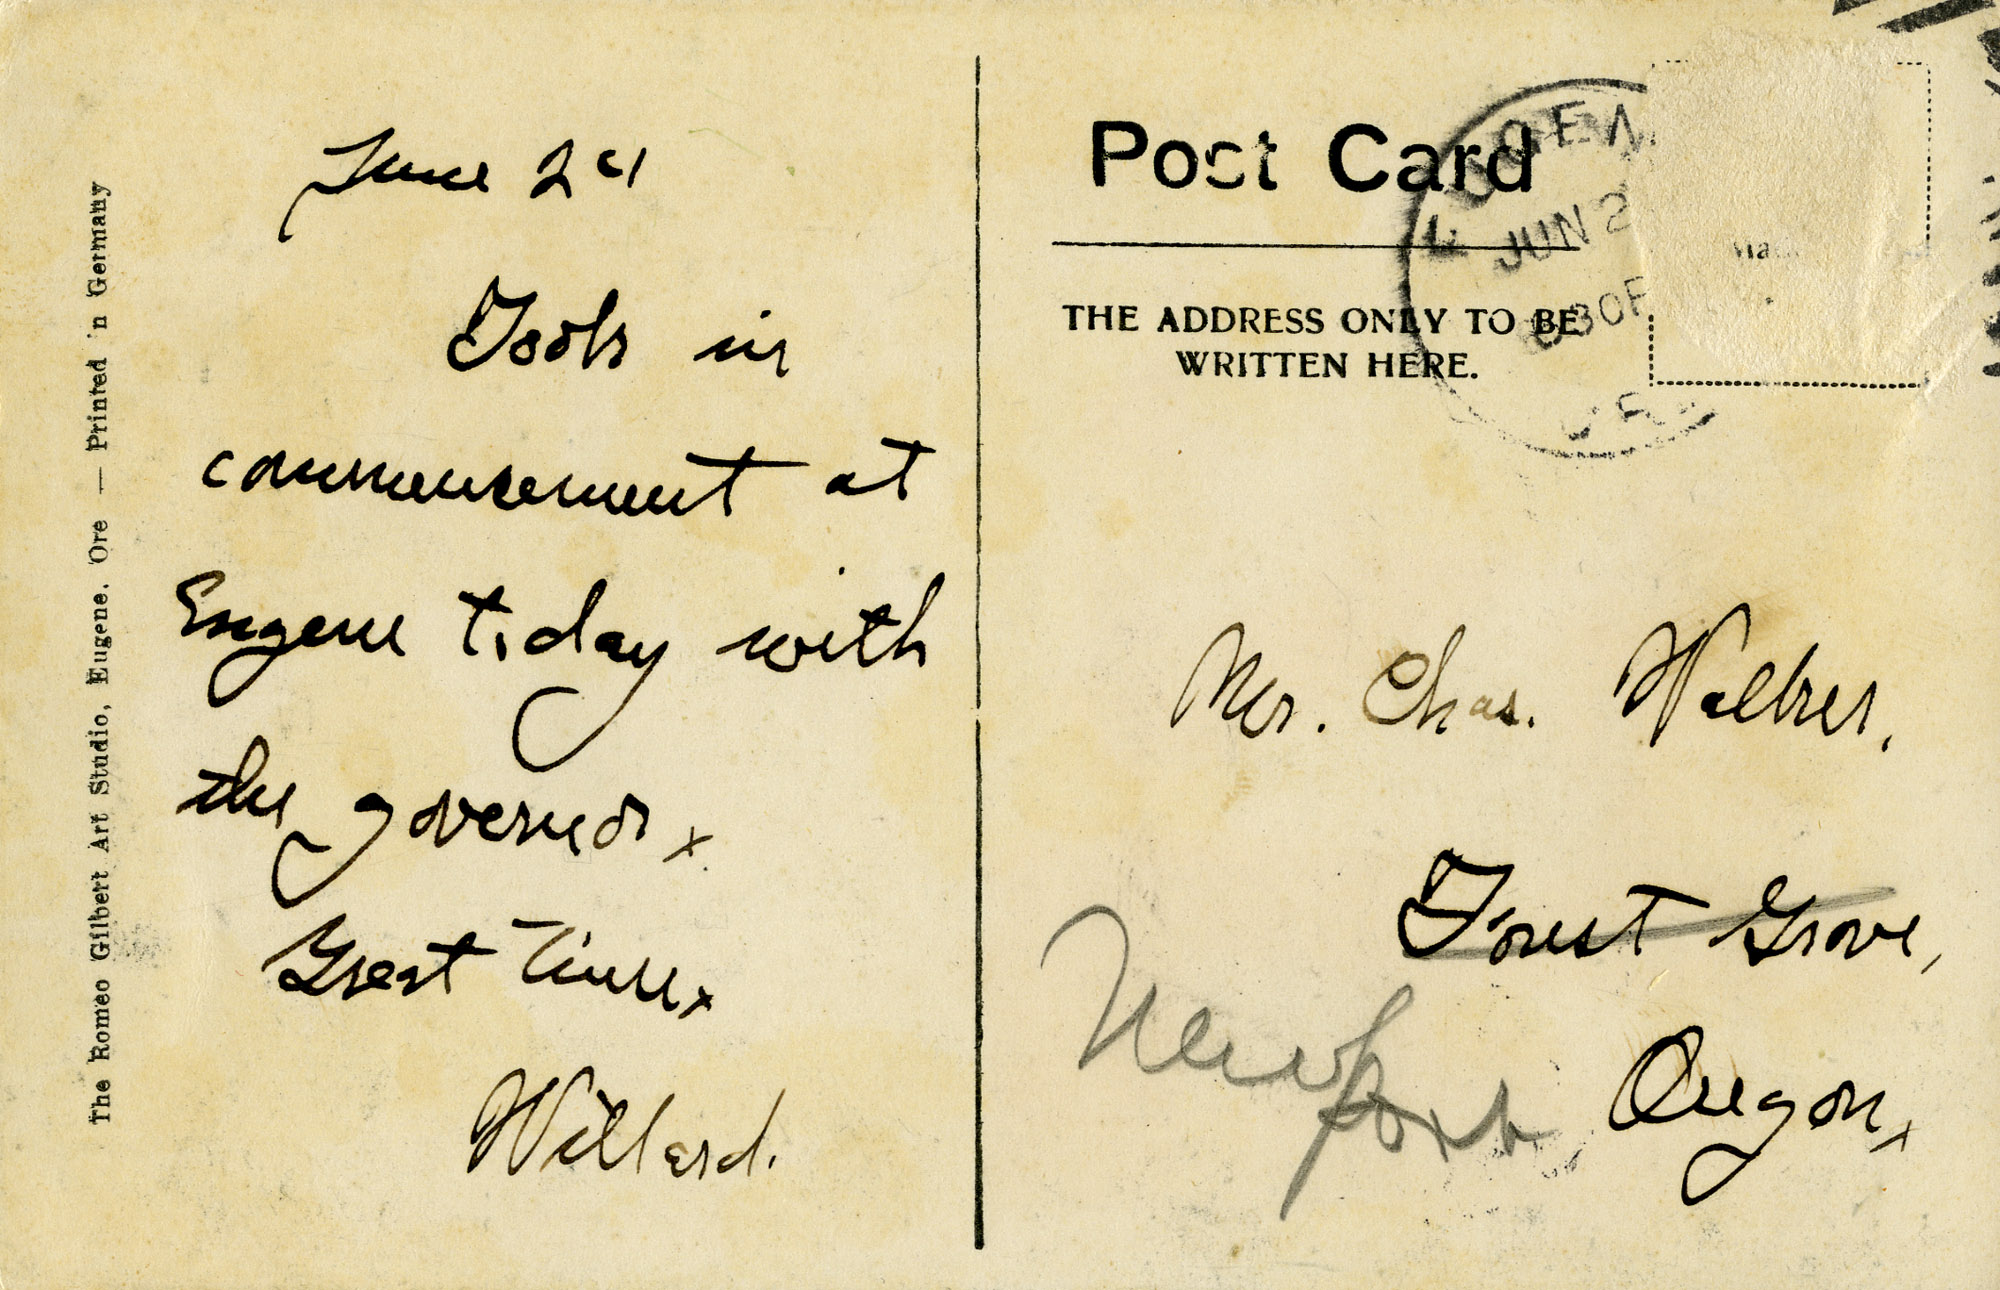 June 24
Took in
commencement at
Eugene today with
the governor.
Great Time.
Willard.
The Romeo Gilbert Art Studio, Eugene. Ore — Printed in Germany
Post Card
THE ADDRESS ONLY TO BE
WRITTEN HERE.
EUGEN
JUN 2
30P
Mr. Chas. Walker,
Forest Grove,
Newport
Oregon.